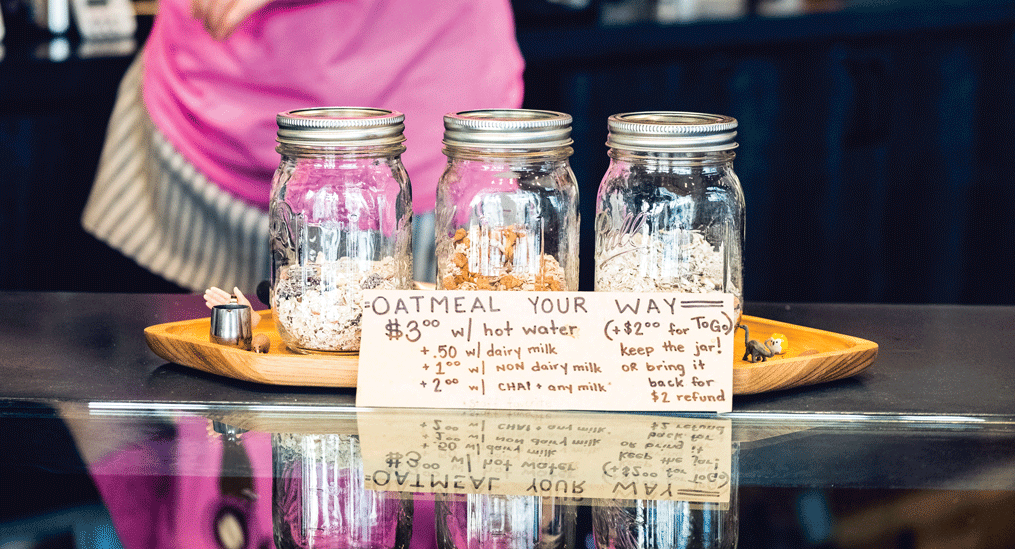 =OATMEAL YOUR WAY=
$3⁰⁰ w/ hot water
+ .50 w/ dairy milk
+ 1⁰⁰ w/ NON dairy milk
+ 2⁰⁰ w/ CHAI + any milk
(+$2⁰⁰ for ToGo)
keep the jar!
OR bring it
back for
$2 refund